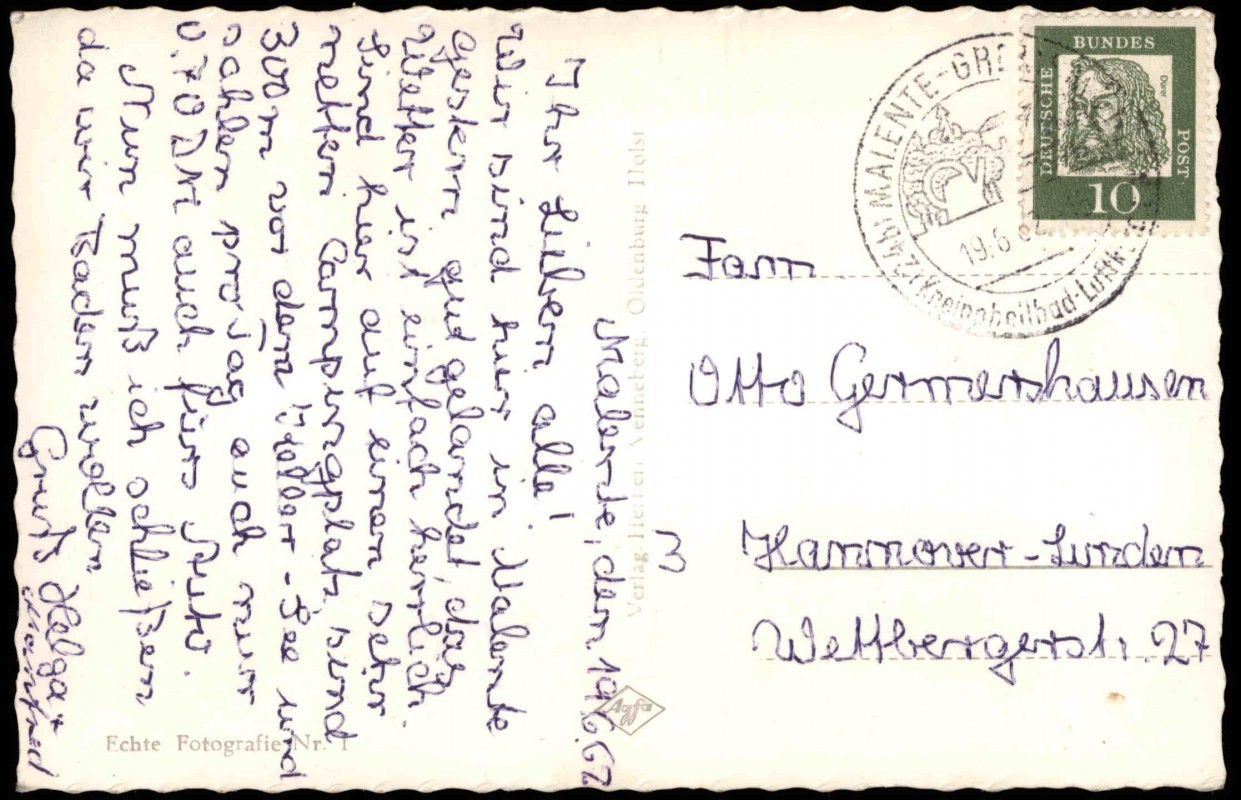 Malente, den 19.6.62
Ihr Lieben alle!
Wir sind hier in Malente
gestern gut gelandet, das
Wetter ist einfach herrlich.
Sind hier auf einen sehr
netten Campingplatz, sind
300 m vor dem Keller-See und
zahlen pro Tag auch nur
0.70 DM auch fürs Auto.
Nun muß ich schließen
da wir Baden wollen
Gruß Helga +
Manfred
Echte Fotografie Nr. 1
Verlag Helmut Venneberg, Oldenburg Holst
Agfa
DEUTSCHE
BUNDES
POST
Dürer
10
MALENTE-GR
19.6.6
Kneippheilbad-Luftk
Fam
Otto Germershausen
3
Hannover-Linden
Wettbergerstr. 27